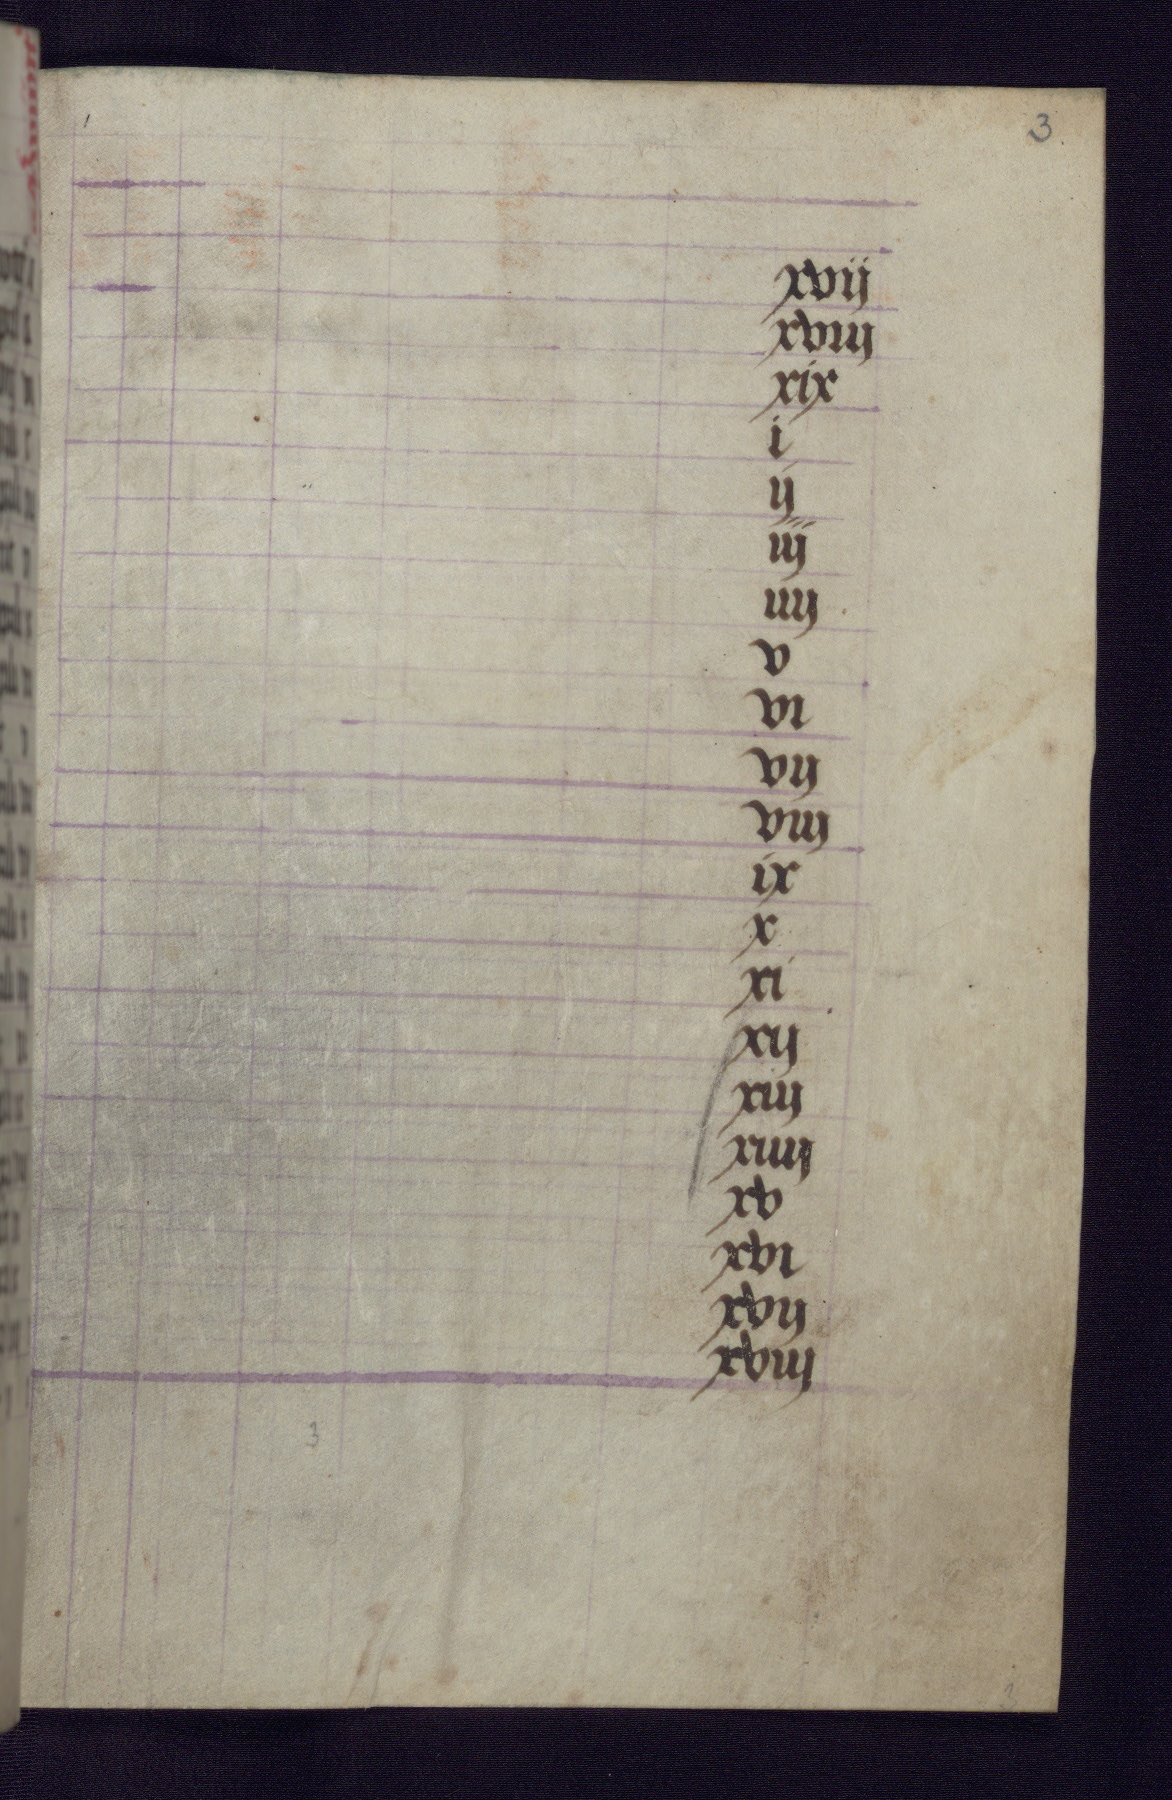 3
xvij
xviij
xix
i
ij
iij
iiij
v
vi
vij
viij
ix
x
xi
xij
xiij
xiiij
xv
xvi
xvij
xviij
3